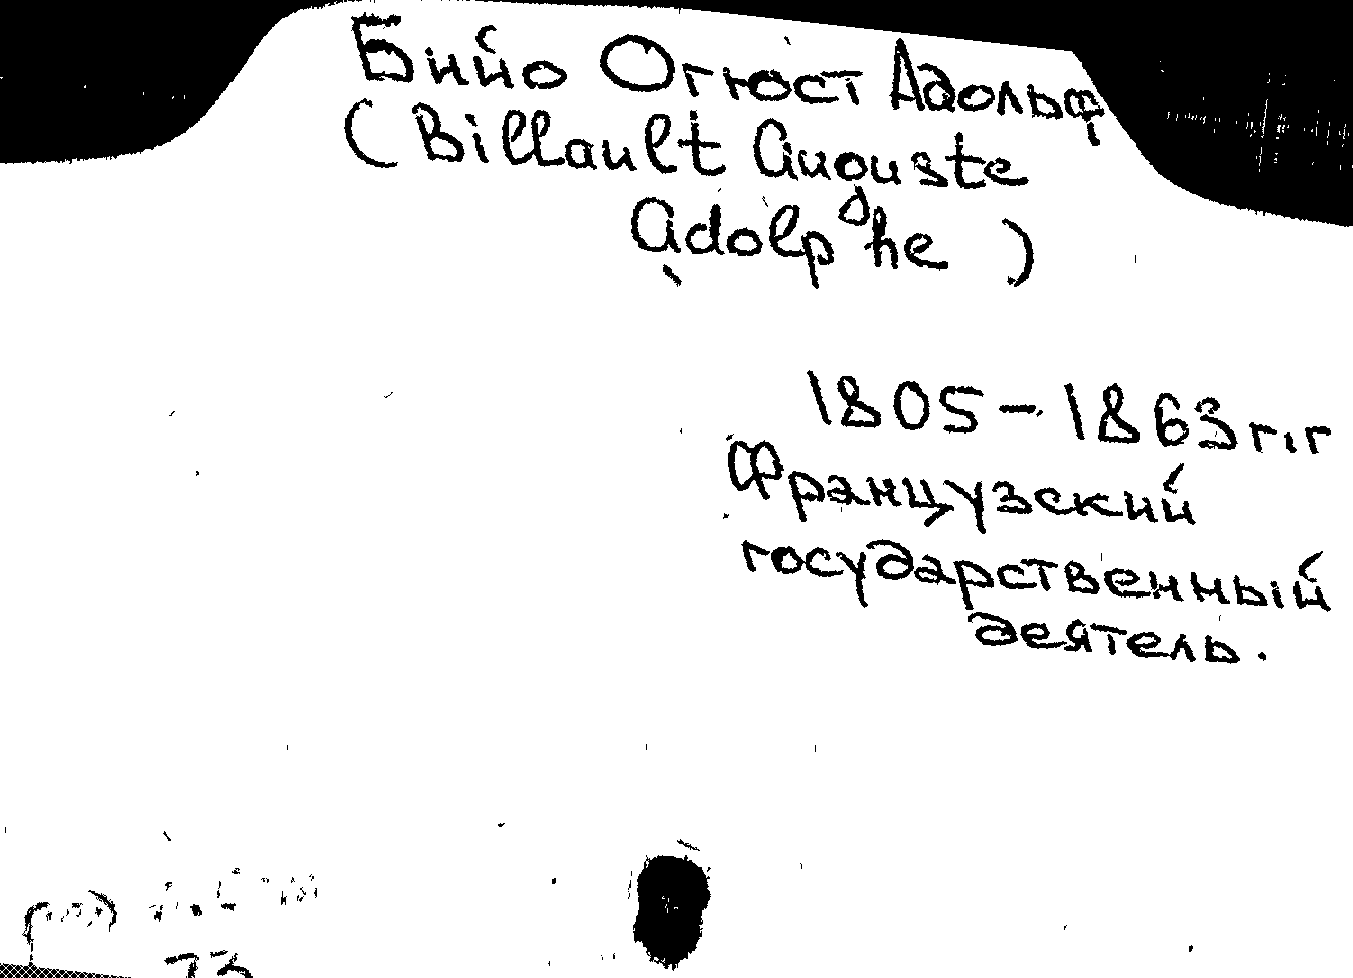 Бийо Огюст Адольф
(Billault Auguste
Adolphe)
1805-1863 г.г
Французский
государственный
деятель.
73